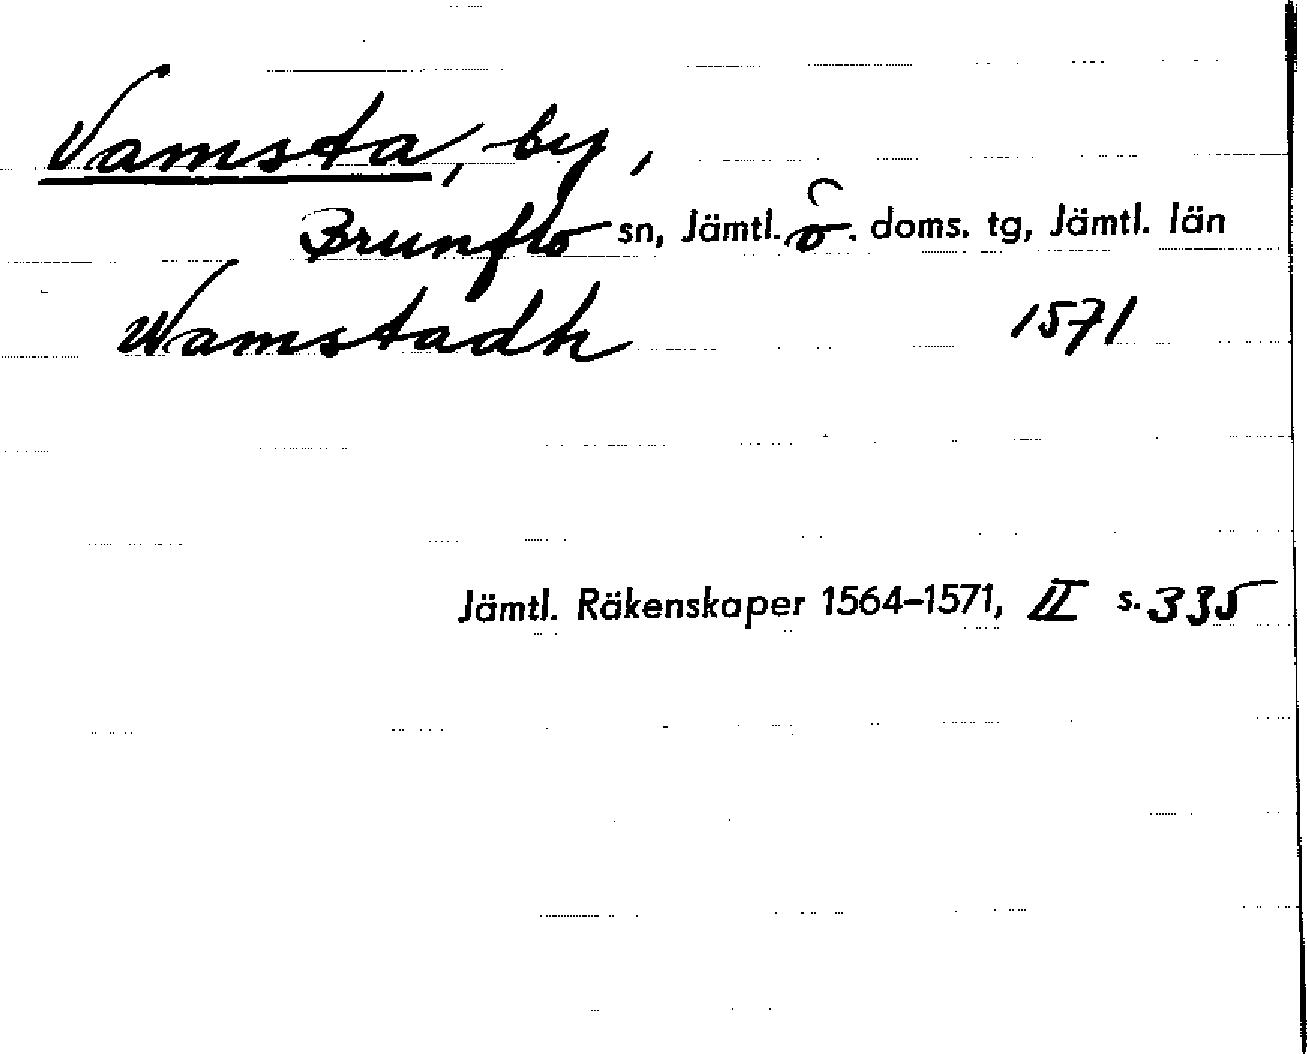 Vamsta, by,
Brunflo sn, Jämtl. ö. doms. tg, Jämtl. län
Wamstadh 1571
Jämtl. Räkenskaper 1564–1571, II s. 335